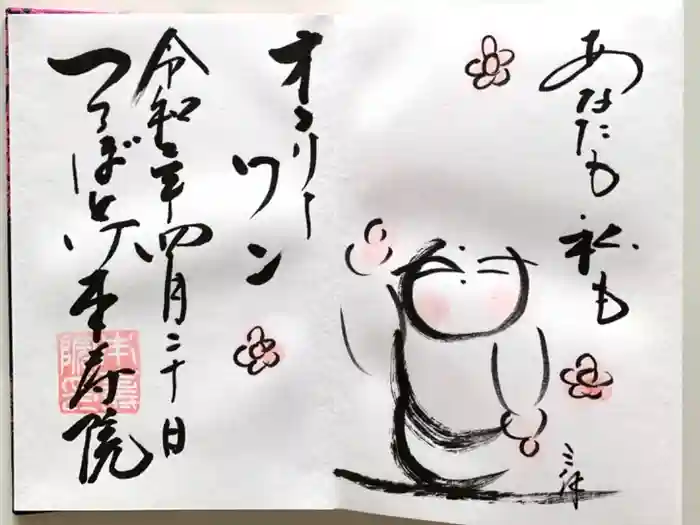 あなたも私も
オンリー
ワン
令和二年四月二十日
つちぼとけ本寿院